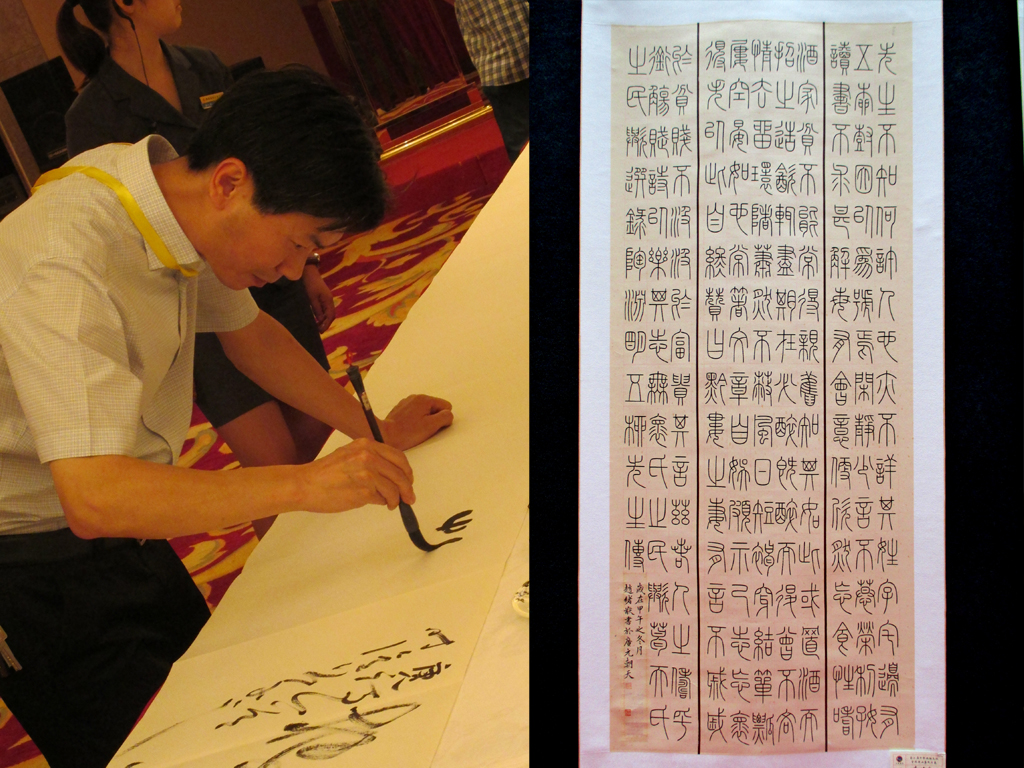 先生不知何許人也亦不詳其姓字宅邊有
五柳樹因以為號焉閑靜少言不慕榮利好
讀書不求甚解每有會意便欣然忘食性嗜
酒家貧不能常得親舊知其如此或置酒而
招之造飲輒盡期在必醉既醉而退曾不吝
情去留環堵蕭然不蔽風日短褐穿結簞瓢
屢空晏如也常著文章自娛頗示己志忘懷
得失以此自終贊曰黔婁之妻有言不戚戚
於貧賤不汲汲於富貴其言茲若人之儔乎
銜觴賦詩以樂其志無懷氏之民歟葛天氏
之民歟選錄陶淵明五柳先生傳
歲在甲午之冬月
書於